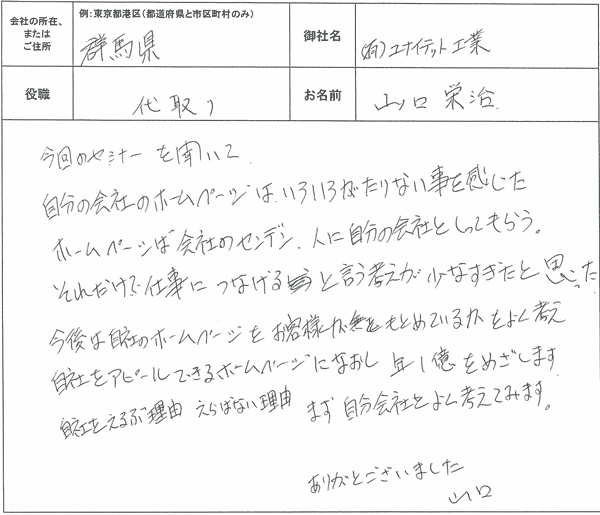 会社の所在、
または
ご住所
例:東京都港区(都道府県と市区町村のみ)
群馬県
御社名
(有)ユナイテット工業
役職
代取り
お名前
山口 栄治
今回のセミナーを聞いて
自分の会社のホームページは、いろいろがたりない事を感じた
ホームページは会社のセンデン、人に自分の会社としってもらう。
それだけで仕事につなげる と言う考えが少なすぎたと思った
今後は自社のホームページをお客様が をもとめているかをよく考え
自社をアピールできるホームページになおし 年1億をめざします
自社をえるぶ理由 えらばない理由 まず自分会社とよく考えてみます。
ありがとございました
山口